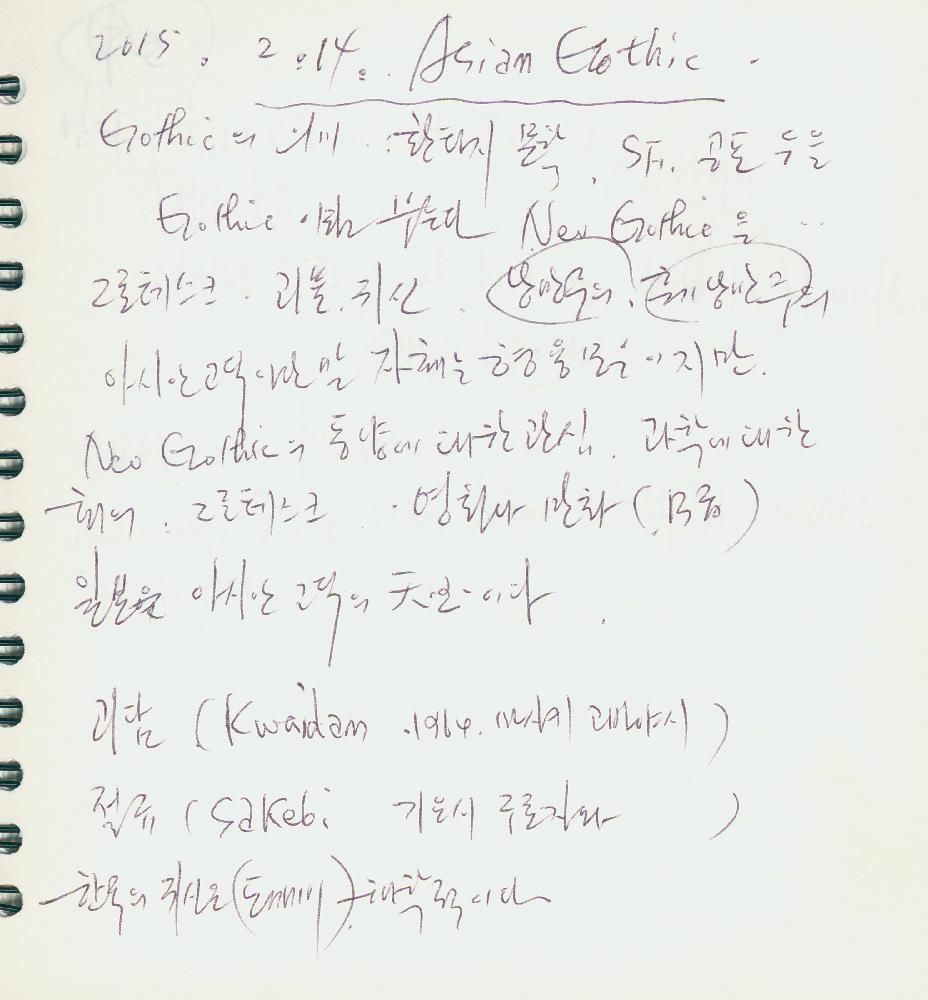 2015. 2.14. Asian Gothic.
Gothic의 의미 : 환타지 문학, SF, 공포 등을
Gothic 이라 부른다 Neo Gothic은 ..
그로테스크. 괴물. 귀신. 낭만주의. 후기 낭만주의
아시안고딕이란 말 자체는 형용모순이지만.
Neo Gothic의 동양에 대한 관심. 과학에 대한
회의. 그로테스크. 영화나 만화 (B급)
일본은 아시안 고딕의 天国이다.
괴담 (Kwaidan .1964. 마사키 고바야시)
절규 (Sakebi 기요시 구로자와)
한국의 귀신은 (도깨비) 해학적이다